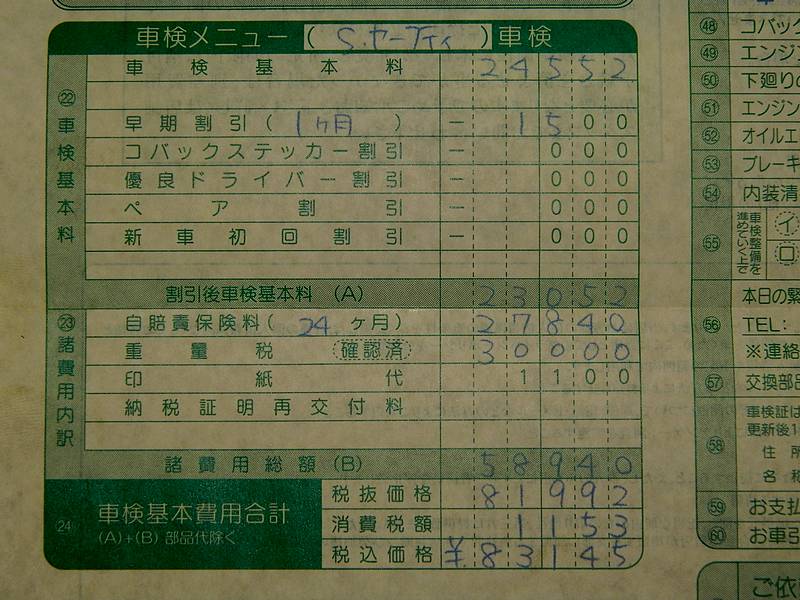 車検メニュー ( S.セーフティ ) 車検
㉒ 車検基本料
車検基本料 24552
早期割引( 1ヶ月 ) − 1500
コバックステッカー割引 − 000
優良ドライバー割引 − 000
ペア割引 − 000
新車初回割引 − 000
割引後車検基本料 (A) 23052
㉓ 諸費用内訳
自賠責保険料( 24 ヶ月) 27840
重量税 確認済 30000
印紙代 1100
納税証明再交付料
諸費用総額 (B) 58940
㉔ 車検基本費用合計
(A)+(B) 部品代除く
税抜価格 81992
消費税額 1153
税込価格 ¥83145
㊽ コバック
㊾ エンジ
㊿ 下廻り
51 エンジン
52 オイルエ
53 ブレーキ
54 内装清
55 車検整備を進めていく上で
イ
ロ
本日の緊
56 TEL:
※連絡
57 交換部品
58 車検証は
更新後1
住所
名
59 お支払
60 お車引
ご依